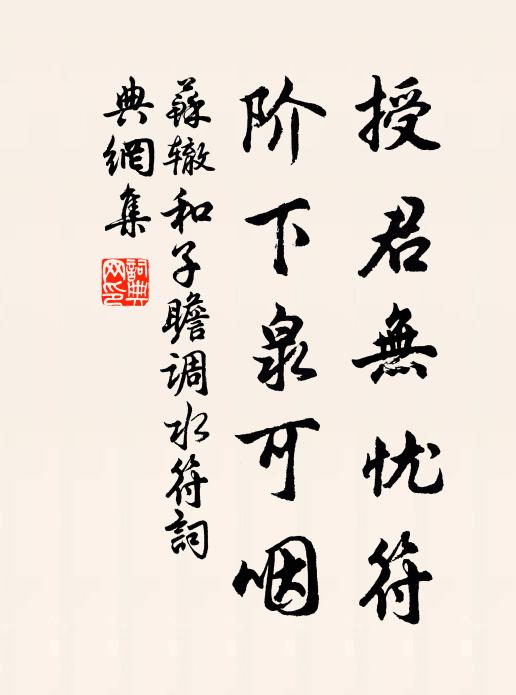 授君無忧符
阶下泉可咽
蘇辙和子瞻调水符詞
典網集
詞典
网印